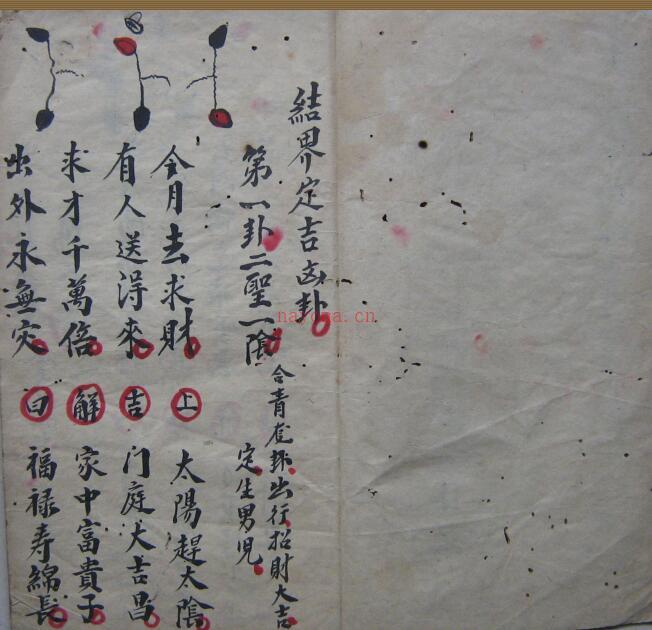 結界定吉凶卦
第一卦二聖一陰
合青龍卦出行招財大吉
定生男児
令月去求財
有人送淂來
求才千萬倍
出外永無灾
上吉解曰
太陽趕太陰
门庭大吉昌
家中富貴子
福禄寿綿長
nayona.cn